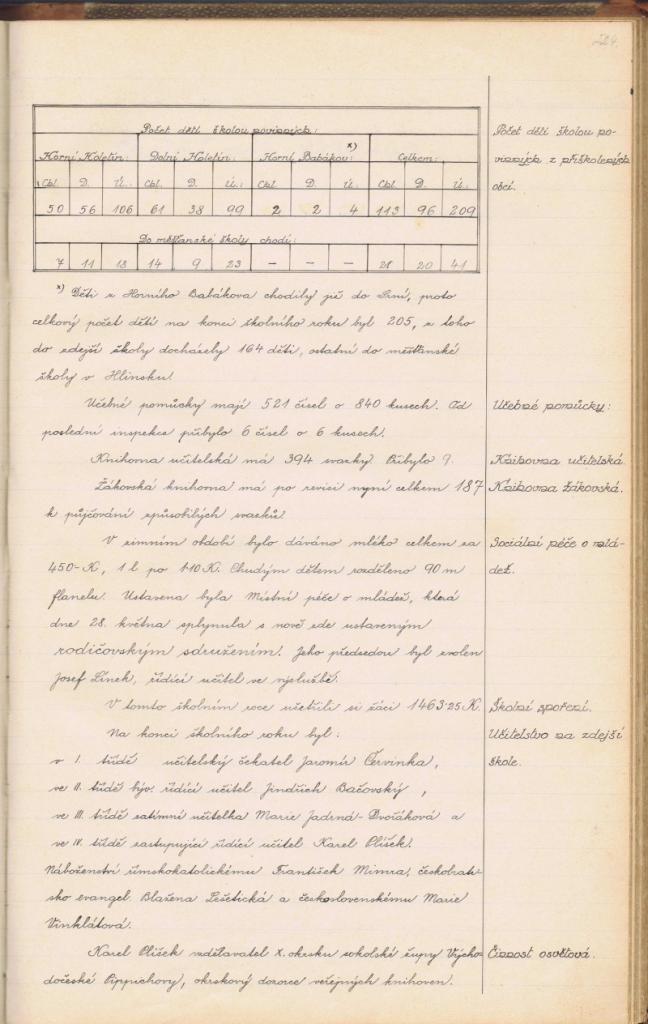 224.
Počet dětí školou povinných:
Horní Holetín: Dolní Holetín: Horní Babákov: x) Celkem:
Chl. D. Ú.: Chl. D. Ú.: Chl. D. Ú.: Chl. D. Ú.:
50 56 106 61 38 99 2 2 4 113 96 209
Do měšťanské školy chodí:
7 11 18 14 9 23 – – – 21 20 41
Počet dětí školou po-
vinných z přiškolených
obcí.
x) Děti z Horního Babákova chodily již do Srní, proto
celkový počet dětí na konci školního roku byl 205, z toho
do zdejší školy docházely 164 děti, ostatní do měšťanské
školy v Hlinsku.
Učebné pomůcky mají 521 čísel o 840 kusech. Od
poslední inspekce přibylo 6 čísel o 6 kusech.
Učebné pomůcky:
Knihovna učitelská má 394 svazky. Přibylo 9.
Knihovna učitelská.
Žákovská knihovna má po revisi nyní celkem 187
k půjčování způsobilých svazků.
Knihovna žákovská.
V zimním období bylo dáváno mléko celkem za
450–K, 1 l po 1·10 K. Chudým dětem rozděleno 90 m
flanelu. Ustavena byla Místní péče o mládež, která
dne 28. května splynula s nově zde ustaveným
rodičovským sdružením. Jeho předsedou byl zvolen
Josef Línek, řídící učitel ve výslužbě.
Sociální péče o mlá-
dež.
V tomto školním roce ušetřili si žáci 1463·25 K.
Školní spoření.
Na konci školního roku byl:
v I. třídě učitelský čekatel Jaromír Červinka,
ve II. třídě býv. řídící učitel Jindřich Bačovský,
ve III. třídě zatímní učitelka Marie Jadrná-Dvořáková a
ve IV. třídě zastupující řídící učitel Karel Plíšek.
Náboženství římskokatolickému František Mimra, českobrat-
sko evangel. Blažena Lešetická a československému Marie
Vinklátová.
Učitelstvo na zdejší
škole.
Karel Plíšek vzdělavatel X. okrsku sokolské župy Výcho-
dočeské Pippichovy, okrskový dozorce veřejných knihoven.
Činnost osvětová.